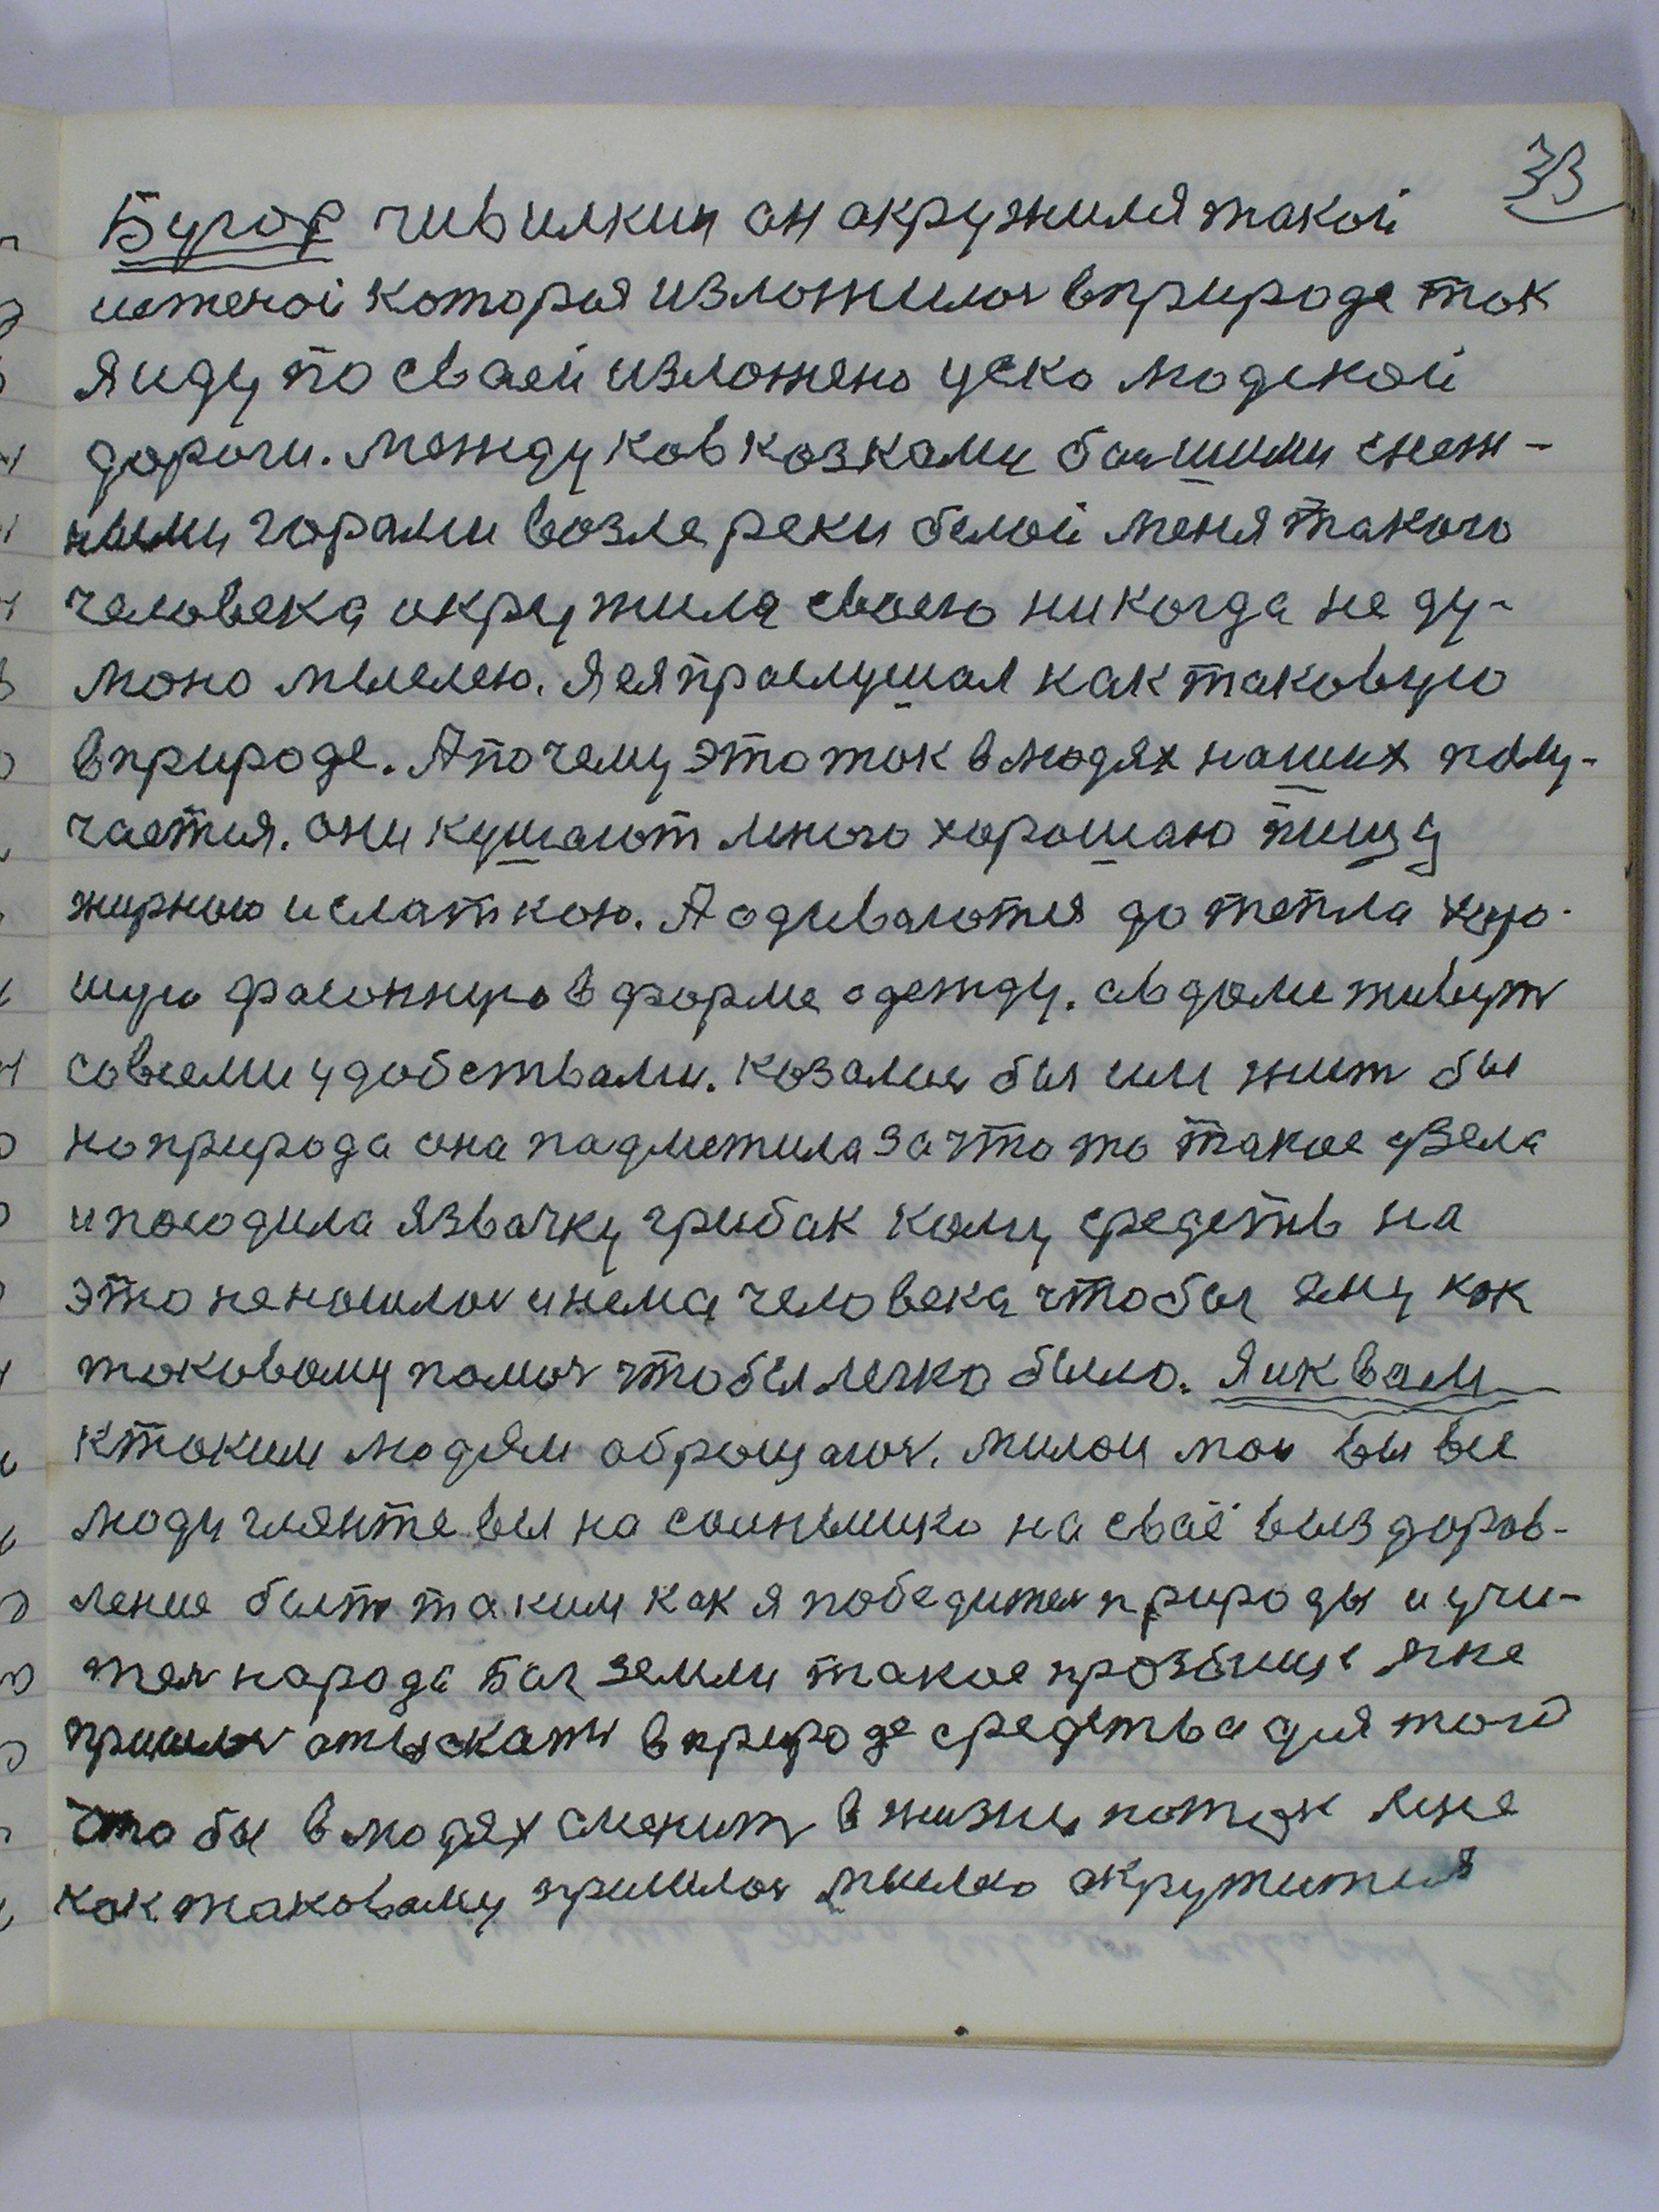 33
Бугор чивилкин он акружился такой
истеной которыя изложилось вприроде так
я иду по сваей изложено уско людской
дороги. между кавказками большими снеж-
ными горами возле реки белой меня такого
человека окружила своею никогда не ду-
мано мыслею. Я ея праслушал как таковую
вприроде. А почему это так в людях наших палу-
чается. они кушают много хорошаю пищу
жирною и слаткою. А одеваются до тепла хоро-
шую фасонную в форме одежду. а в доме живут
совсеми удобствами. казалось бы им жит бы
но природа она падметила за что то такое взела
и посодила язвачку грибак кому средств на
это не нашлось и нема человека чтобы яму как
таковому помоч чтобы легко было. Я и к вам
к таким людям оброщаюсь. милои мои вы все
люди гляньте вы на солнышко на сваё выздоров-
ление быть таким как я победитель природы и учи-
тел народа Бог земли такое прозвище мне
пришлось отыскать в природе средства для того
что бы в людях сменит в жизни поток мне
как таковаму пришлось мыслю акружится